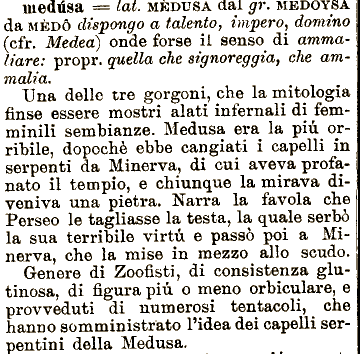 medúsa = lat. MEDÚSA dal gr. MÉDOYSA
da MÉDÔ dispongo a talento, impero, domino
(cfr. Medea) onde forse il senso di amma-
liare: propr. quella che signoreggia, che am-
malia.
Una delle tre gorgoni, che la mitologia
finse essere mostri alati infernali di fem-
minili sembianze. Medusa era la piú or-
ribile, dopochè ebbe cangiati i capelli in
serpenti da Minerva, di cui aveva profa-
nato il tempio, e chiunque la mirava di-
veniva una pietra. Narra la favola che
Perseo le tagliasse la testa, la quale serbò
la sua terribile virtú e passò poi a Mi-
nerva, che la mise in mezzo allo scudo.
Genere di Zoofisti, di consistenza glu-
tinosa, di figura piú o meno orbiculare, e
provveduti di numerosi tentacoli, che
hanno somministrato l'idea dei capelli ser-
pentini della Medusa.